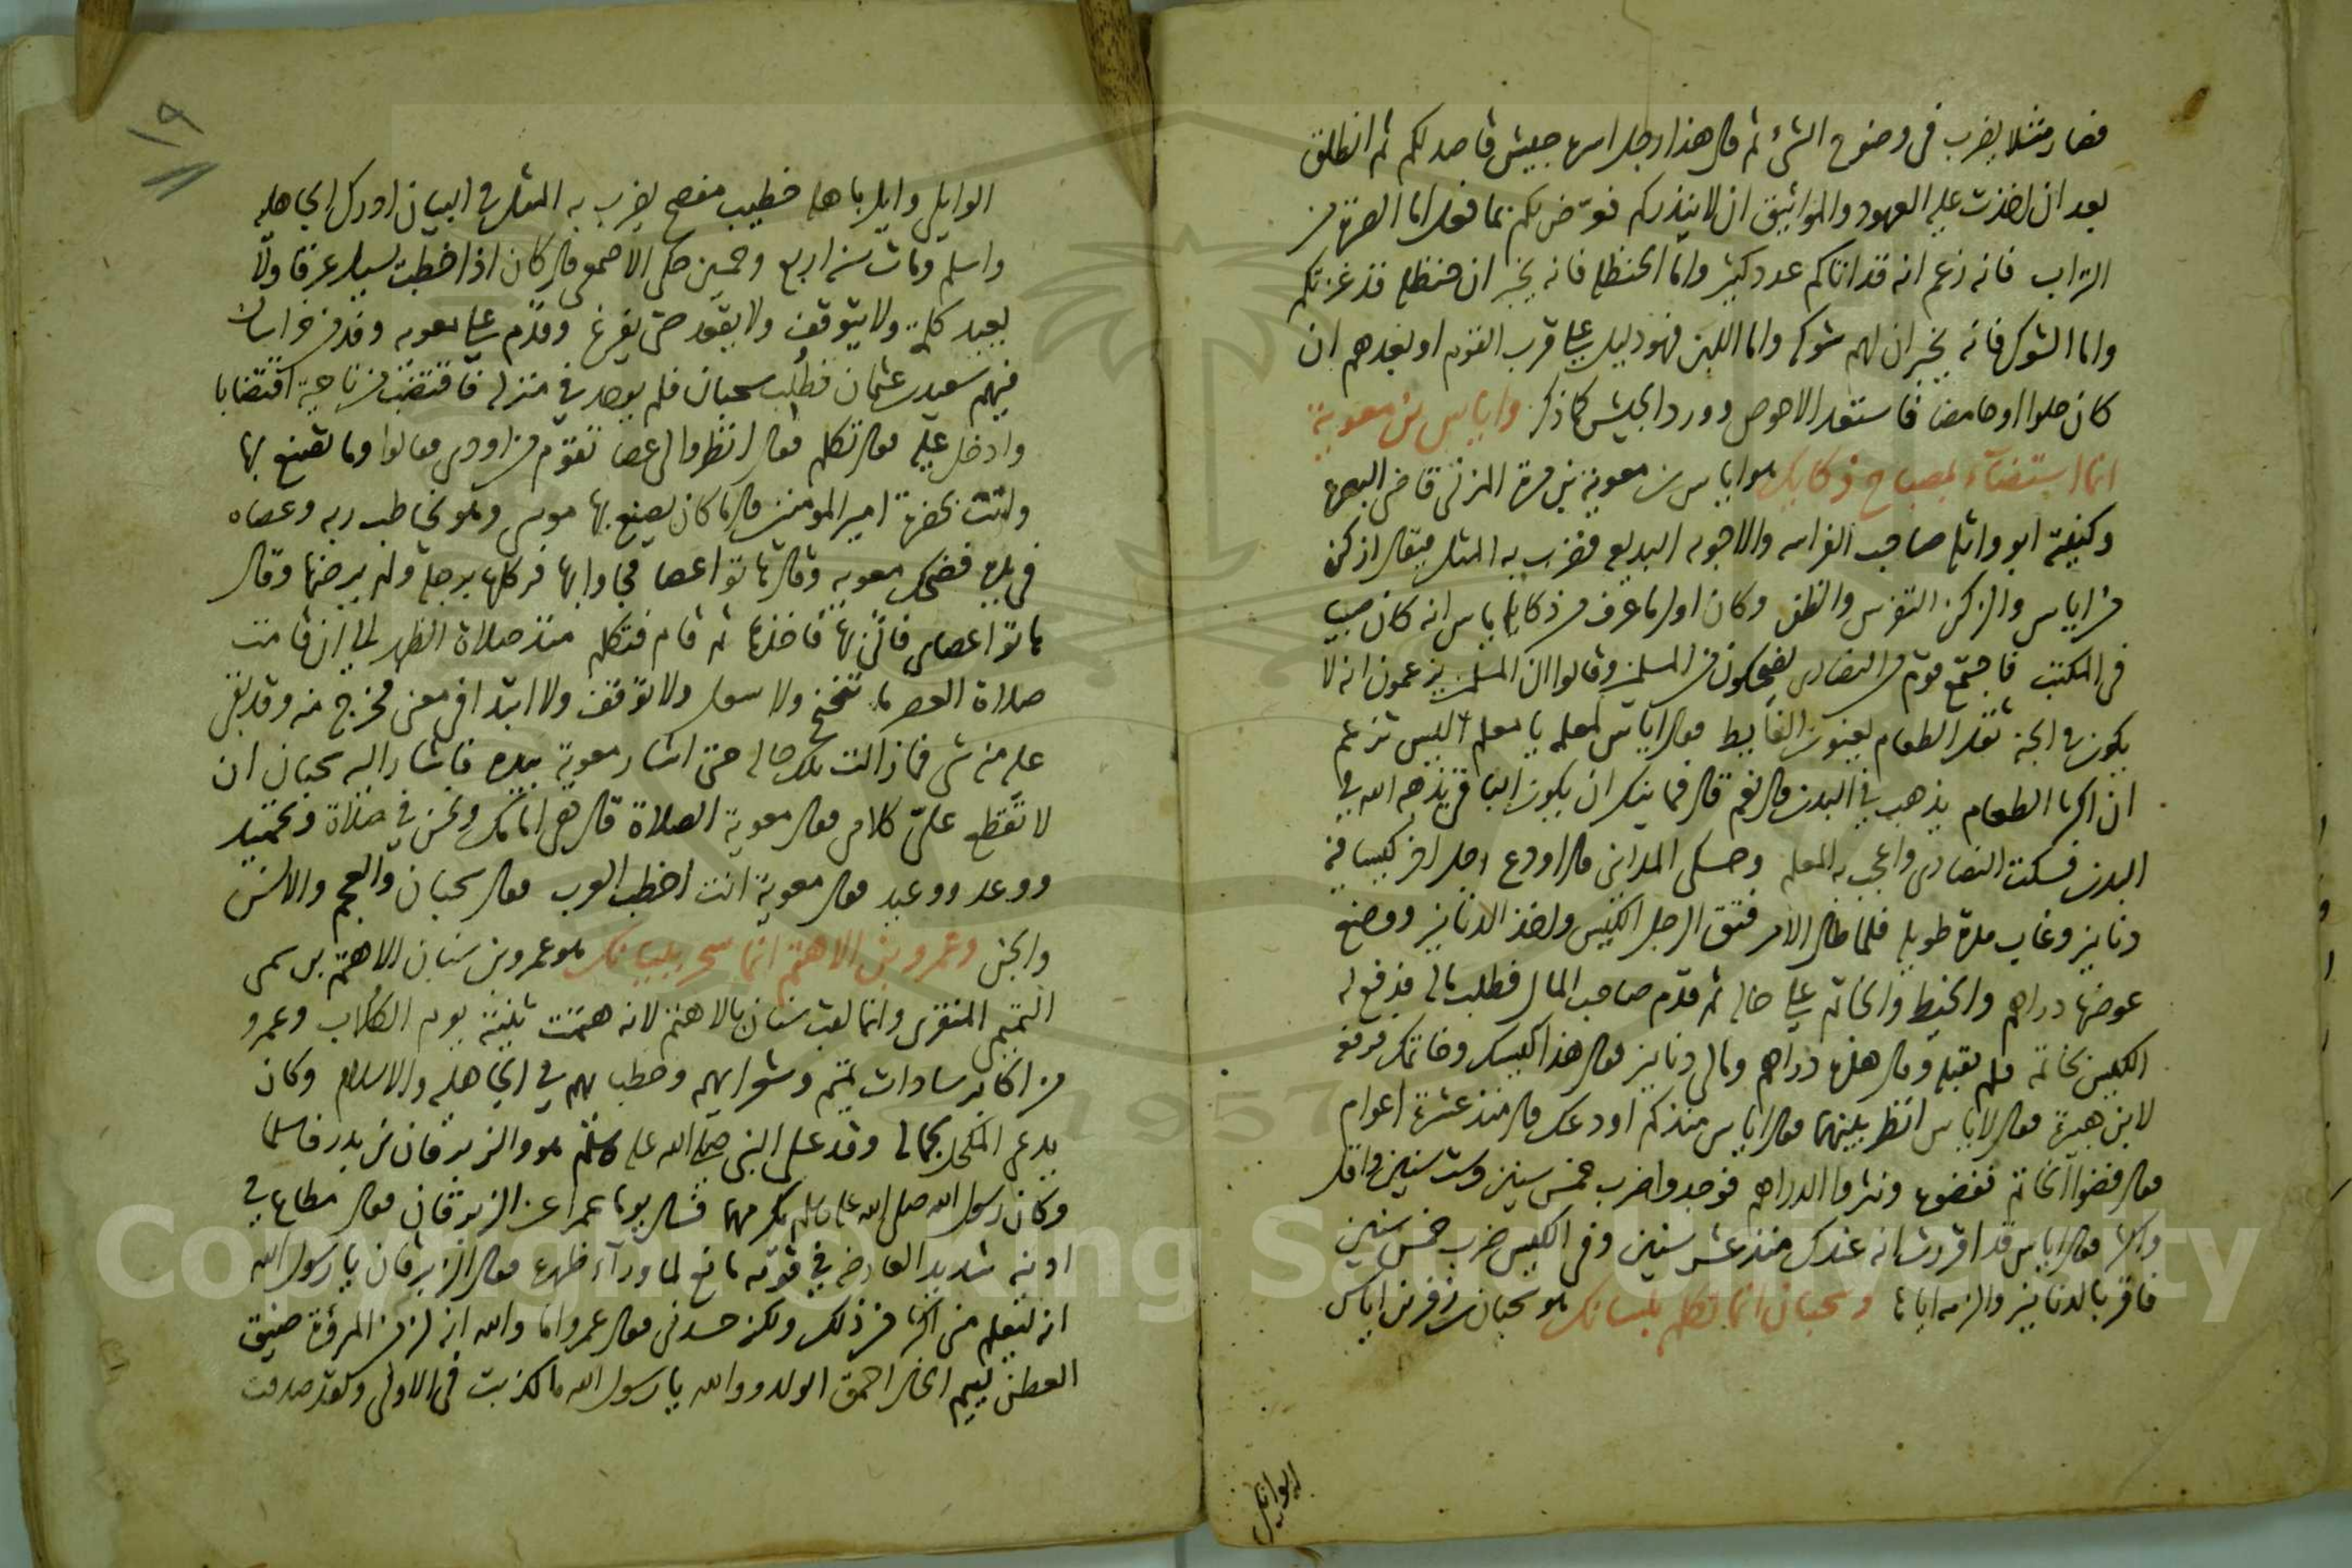 فصار مثلا يضرب فى وضوح الشئ ثم قال هذا رجل اسره جيش قاصد لكم ثم انطلق
بعد ان اخذت عليه العهود والمواثيق ان لا ينذركم فعرّض لكم بما فعل اما الصرة من
التراب فانه زعم انه قد اتاكم عدد كثير واما الحنظل فانه يخبر ان حنظلة قد غزتكم
واما الشوك فانه يخبر ان لهم شوكة واما اللبن فهو دليل على قرب القوم او بعدهم ان
كان حلوا او حامضا فاستعد الاحوص وورد الجيش كما ذكر واياس بن معوية
انما استضآء بمصباح ذكايك هو اياس بن معوية بن قرة المزنى قاضى البصرة
وكنيته ابو واثلة صاحب الفراسه والاجوبه البديعه فضرب به المثل فيقال ازكن
من اياس والزكن التفرس والظن وكان اول ما عرف من ذكايه اياس انه كان صبيا
فى المكتب فاجتمع قوم من النصارى يضحكون من المسلمين وقالوا ان المسلمين يزعمون انه لا
يكون فى الجنة ثقل الطعام يعنون الغايط فقال اياس لمعلمه يا معلم اليس تزعم
ان اكثر الطعام يذهب فى البدن قال نعم قال فما ينكر ان يكون الباقى يذهبه الله فى
البدن فسكت النصارى واعجب به المعلم وحكى المداينى قال اودع رجل اخر كيسا فيه
دنانير وغاب مدة طويلة فلما طال الامر فتق الرجل الكيس واخذ الدنانير ووضع
عوضها دراهم والخيط والخاتم على حاله ثم قدم صاحب المال فطلب ماله فدفع له
الكيس بخاتمه فلم يقبله وقال هذه دراهم ومالى دنانير فقال هذا كيسك وخاتمك فرفعه
لابن هبيرة فقال لاياس انظر بينهما فقال اياس منذ كم اودعك قال منذ عشرة اعوام
فقال فضوا الخاتم ففضوه ونثروا الدراهم فوجدوا ضرب خمس سنين وست سنين واقل
واكثر فقال اياس قد اقررت انه عندك منذ عشر سنين وفى الكيس ضرب خمس سنين
فاقر بالدنانير والزمه اياها وسحبان انما تكلم بلسانك هو سحبان بن زفر بن اياس
الوايلى
١٩
الوايلى وايل باهلة خطيب مفصح يضرب به المثل فى البيان ادرك الجاهليه
واسلم ومات سنة اربع وخمسين حكى الاصمعى قال كان اذا خطب يسيل عرقا ولا
يعيد كلمة ولا يتوقف ولا يقعد حتى يفرغ وقدم على معويه وفد من خراسان
فيهم سعيد بن عثمان فطلب سحبان فلم يوجد فى منزله فاقتضب من ناحية اقتضابا
وادخل عليه فقال تكلم فقال انظروا لى عصا تقوم من اودى فقالوا وما تصنع بها
وانت بحضرة امير المومنين قال ما كان يصنع بها موسى وهو يخاطب ربه وعصاه
فى يده فضحك معويه وقال هاتوا عصا فجاوا بها فركلها برجله ولم يرضها وقال
هاتوا عصاى فاتى بها فاخذها ثم قام فتكلم منذ صلاة الظهر الى ان قامت
صلاة العصر ما تنحنح ولا سعل ولا توقف ولا ابتدا فى معنى فخرج منه وقد بقى
عليه منه شى فما زالت تلك حاله حتى اشار معوية بيده فاشار اليه سحبان ان
لا تقطع علىّ كلامى فقال معوية الصلاة قال هى امامك ونحن فى صلاة وتحميد
ووعد ووعيد فقال معوية انت اخطب العرب فقال سحبان والعجم والانس
والجن وعمرو بن الاهتم انما سحر ببيانك هو عمرو بن سنان الاهتم بن سمى
التميمى المنقرى وانما لقب سنان بالاهتم لانه هتمت ثنيته يوم الكلاب وعمرو
من اكابر سادات تميم وشعرايهم وخطبايهم فى الجاهليه والاسلام وكان
يدعى المكحل بجماله وفد على النبى صلى الله عليه وسلم هو والزبرقان بن بدر فاسلما
وكان رسول الله صلى الله عليه وسلم يكرمهما فسال يوما عمرا عن الزبرقان فقال مطاع فى
ادنيه شديد العارضه فى قومه مانع لما ورآء ظهره فقال الزبرقان يا رسول الله
انه ليعلم منى اكثر من ذلك ولكنه حسدنى فقال عمرو اما والله انه لزمن المرؤة ضيق
العطن لئيم الخال احمق الولد ووالله يا رسول الله ما كذبت فى الاولى ولقد صدقت